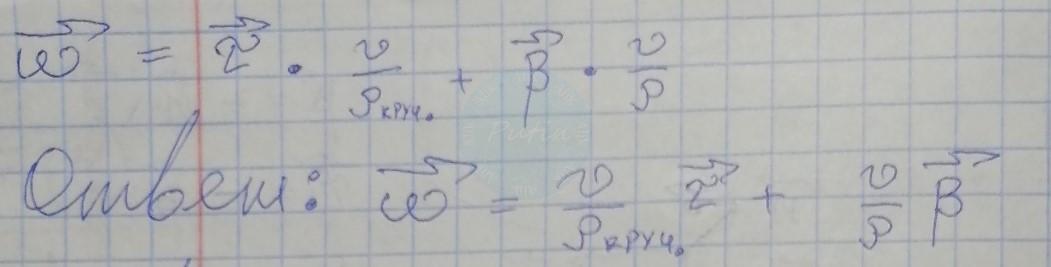 $\vec{\omega} = \vec{\tau} \cdot \frac{v}{\rho_{круч.}} + \vec{\beta} \cdot \frac{v}{\rho}$
Ответ: $\vec{\omega} = \frac{v}{\rho_{круч.}} \vec{\tau} + \frac{v}{\rho} \vec{\beta}$